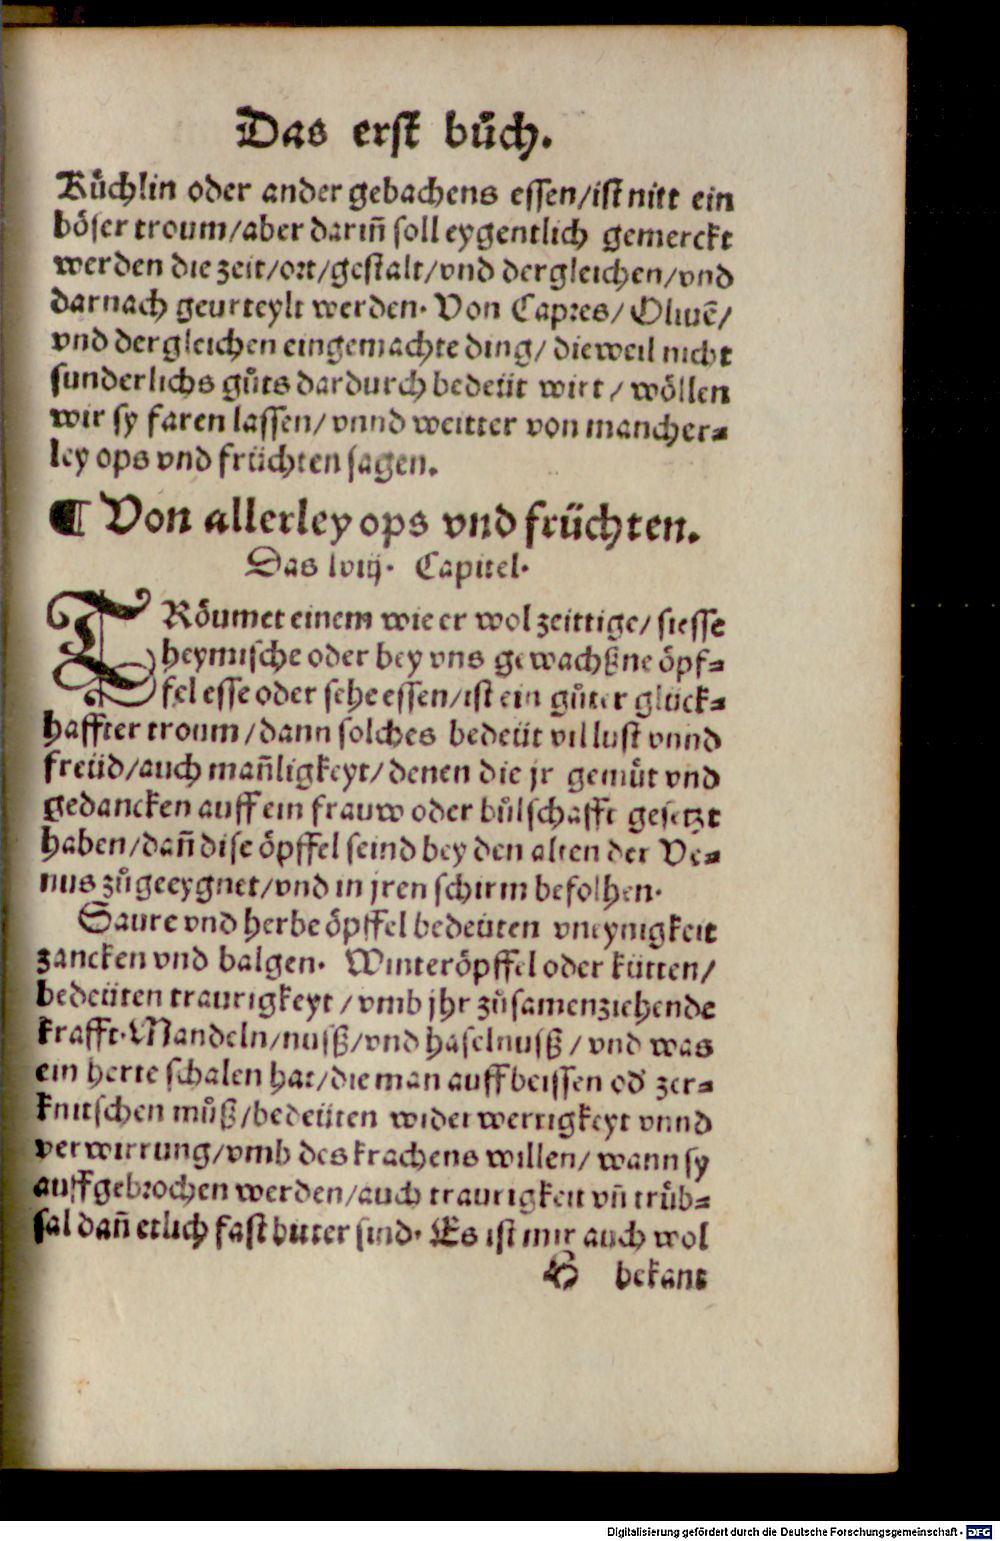 Das erst bůch.
Kůchlin oder ander gebachens essen/ist nitt ein
böser troum/aber dariñ soll eygentlich gemerckt
werden die zeit/ort/gestalt/vnd dergleichen/vnd
darnach geurteylt werden. Von Capres/ Oliuē/
vnd dergleichen eingemachte ding/ dieweil nicht
sunderlichs gůts dardurch bedeüt wirt/ wöllen
wir sy faren lassen/ vnnd weitter von mancher⸗
ley ops vnd früchten sagen.
¶ Von allerley ops vnd früchten.
Das lviij. Capitel.
TRöumet einem wie er wol zeittige/ siesse
heymische oder bey vns gewachßne öpf⸗
fel esse oder sehe essen/ist ein gůter glück⸗
haffter troum/dann solches bedeüt vil lust vnnd
freüd/auch mañligkeyt/denen die jr gemüt vnd
gedancken auff ein frauw oder bůlschafft gesetzt
haben/dañ dise öpffel seind bey den alten der Ve⸗
nus zůgeeygnet/vnd in jren schirm befolhen.
Saure vnd herbe öpffel bedeüten vneynigkeit
zancken vnd balgen. Winteröpffel oder kütten/
bedeüten traurigkeyt/vmb jhr zůsamenziehende
krafft. Mandeln/nusß/vnd haselnusß/ vnd was
ein herte schalen hat/die man auffbeissen od' zer⸗
knitschen můß/bedeüten widerwertigkeyt vnnd
verwirrung/vmb des krachens willen/ wann sy
auffgebrochen werden/auch traurigkeit vñ trůb⸗
sal dañ etlich fast bitter sind. Es ist mir auch wol
H bekant
Digitalisierung gefördert durch die Deutsche Forschungsgemeinschaft - DFG